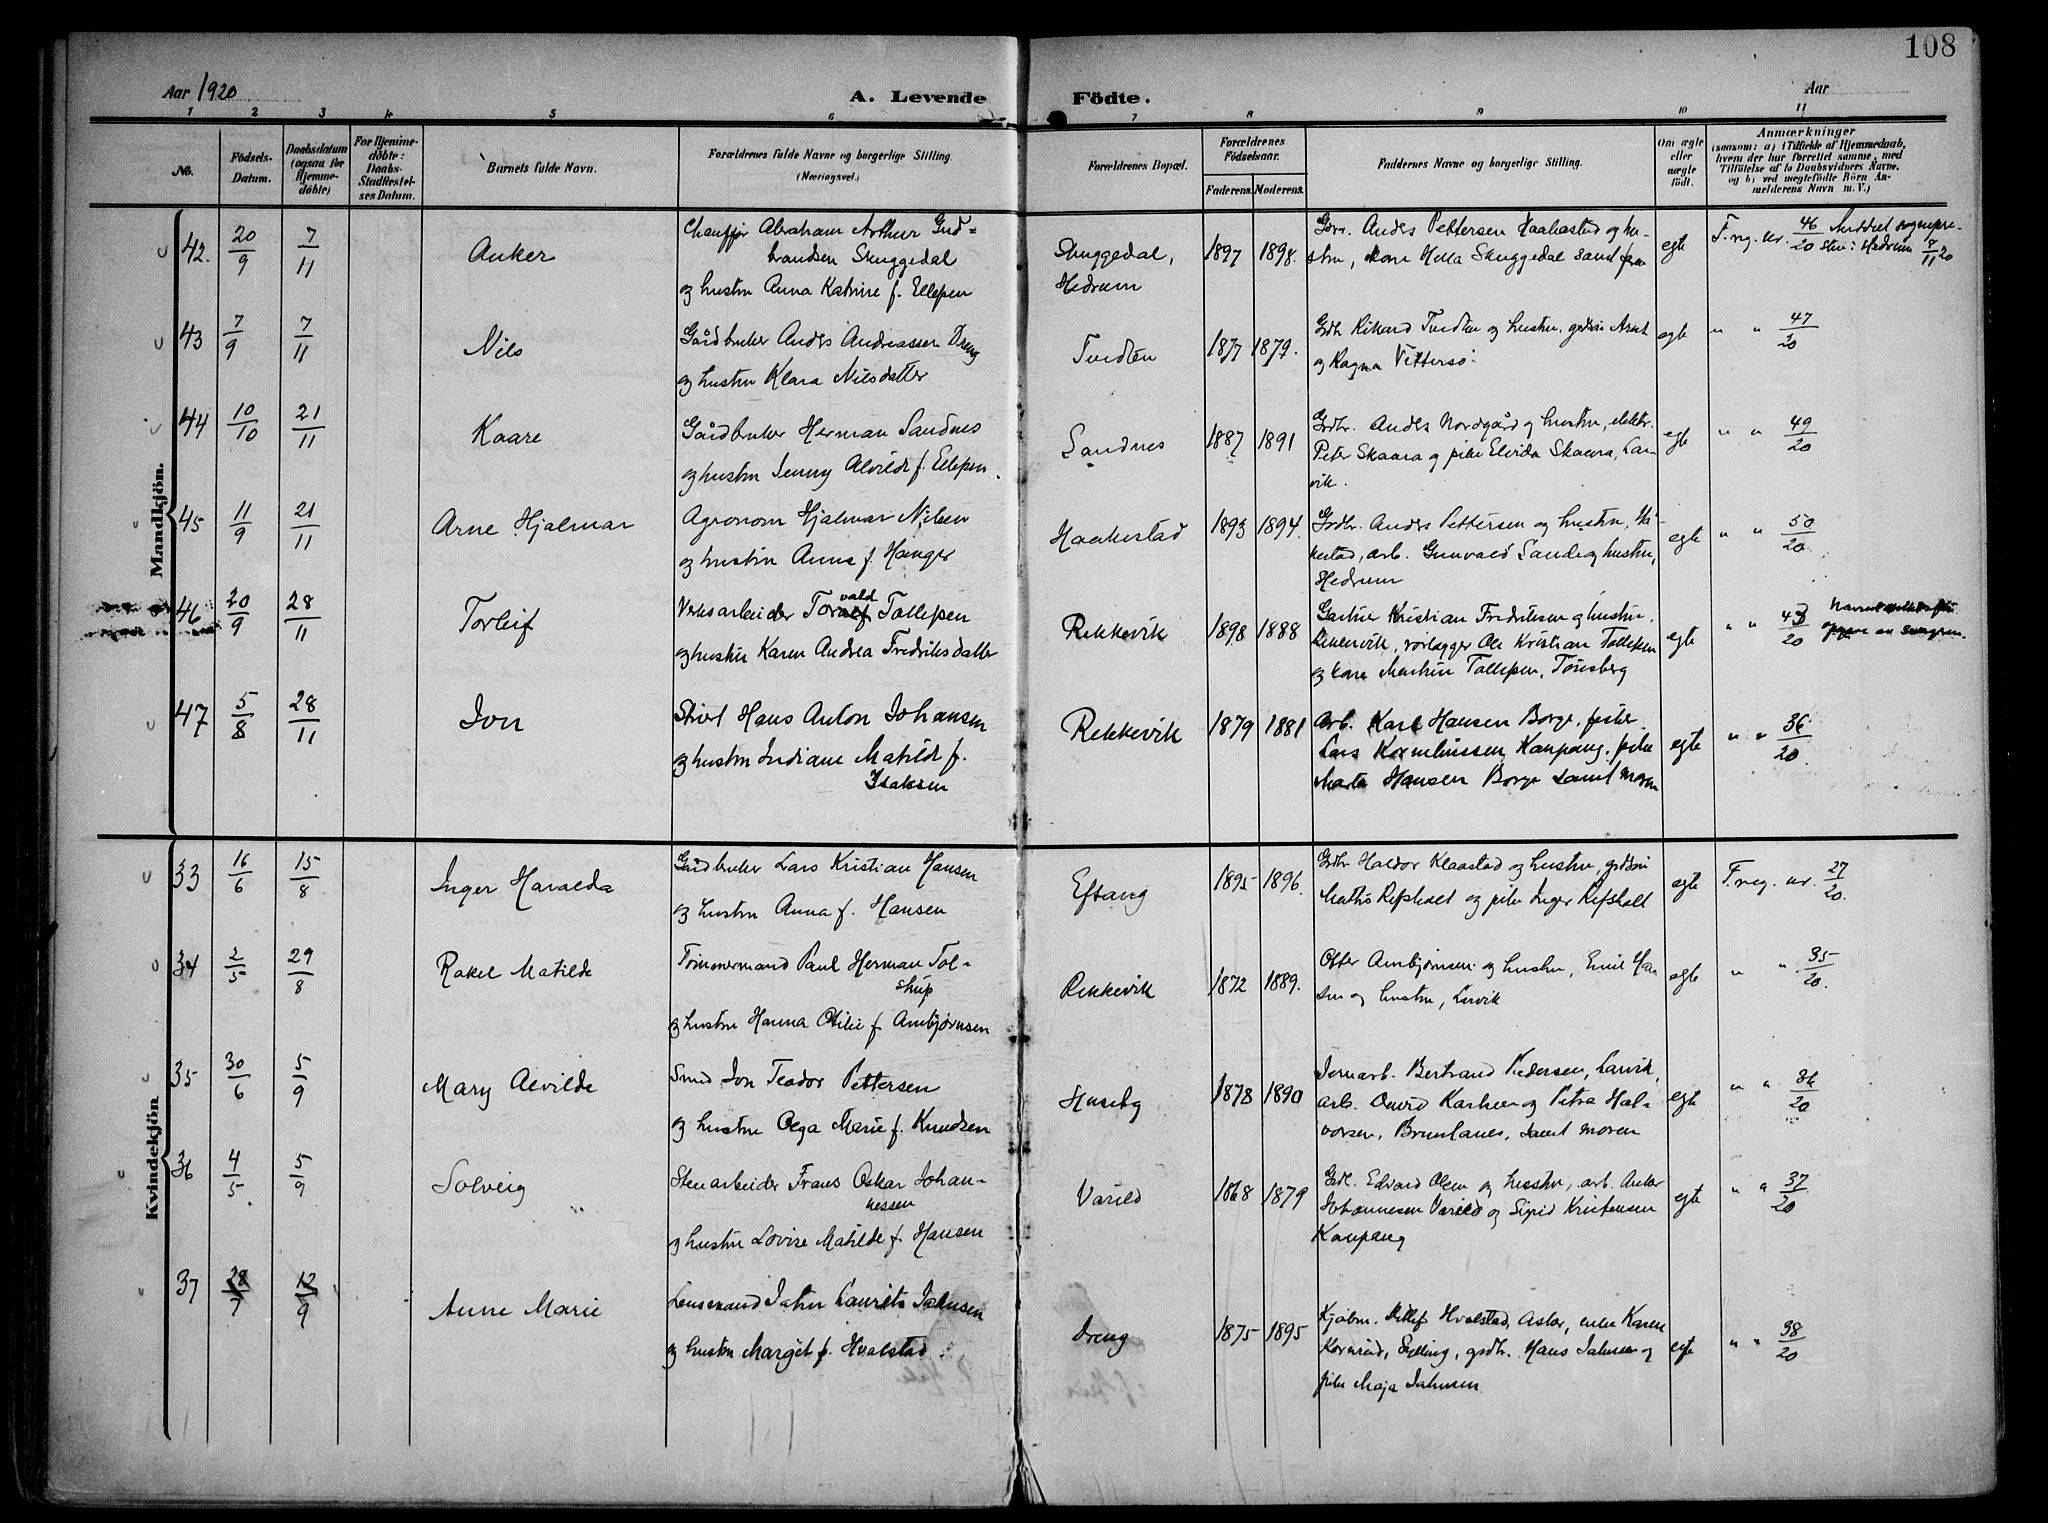 108
Aar 1920
A. Levende Födte.
Aar
1 2 3 4 5 6 7 8 9 10 11
No.
Födsels-Datum.
Daabsdatum (ogsaa for Hjemmedöbte)
For Hjemmedöbte: Daabs-Stadfæstelses Datum.
Barnets fulde Navn.
Forældrenes fulde Navne og borgerlige Stilling. (Næringsvei.)
Forældrenes Bopæl.
Forældrenes Födselsaar.
Faderens. Moderens.
Faddernes Navne og borgerlige Stilling.
Om ægte eller uægte födt.
Anmærkninger
(saasom: a) i Tilfælde af Hjemmedaab, hvem der har forrettet samme, med Tilföielse af to Daabsvidners Navne, og b) ved uægtefödte Börn Anmelderens Navn m. V.)
Mandkjön.
42. 20/9 7/11 Anker
Chauffør Abraham Arthur Gud=
brandsen Skuggedal
og hustru Anna Katrine f. Ellefsen
Skuggedal,
Hedrum
1897 1898.
Gbr. Anders Pettersen Haakestad og hu-
stru, Hella Skuggedal samt faren
egte
F. reg. nr. 46/20 Meddelt sognepre-
sten i Hedrum 8/11 20
43 7/9 7/11 Nils
Gårdbruker Anders Andreassen Dreng
og hustru Klara Nilsdatter
Tvedten
1877 1879.
Gbr. Rikard Tvedten og hustru,
og Ragna Vittersø.
egte
" " 47/20
44 10/10 21/11 Kaare
Gårdbruker Herman Sandnes
og hustru Jenny Alvilde f. Ellefsen.
Sandnes
1887 1891
Gbr. Anders Nordgård og hustru, elektr.
Peter Skaara og pike Elvida Skaara, Lar-
vik.
egte
" " 49/20
45 11/9 21/11 Arne Hjalmar
Agronom Hjalmar Nilsen
og hustru Anna f. Hanger
Haakestad
1893 1894.
Gbr. Anders Pettersen og hustru, Hå-
kestad, arb. Gunvald Sande og hustru,
Hedrum
egte
" " 50/20.
46 20/9 28/11 Torleif
vald
Verksarbeider Tollefsen
og hustru Karen Andrea Fredriksdatter
Rekkevik
1898 1888
Gartner Kristian Fredriksen og hustru,
Rekkevik, rørlegger Ole Kristian Tollefsen
og kone Martine Tollefsen, Tønsberg
egte
" " 43/20
47 5/8 28/11 Jon
Stuert Hans Anton Johansen
og hustru Indiane Matilde f.
Isaksen
Rekkevik
1879 1881
Arb. Karl Hansen Borge, fisker
Lars Korneliussen, Kaupang, pike
Marta Hansen Borge samt moren
egte
" " 36/20.
Kvindekjön
33 16/6 15/8 Inger Haralda
Gårdbruker Lars Kristian Hansen
og hustru Anna f. Hansen
Eftang
1895 1896.
Gbr. Haldor Klaastad og hustru,
Mathis Refsholt og pike Inger Refsholt
egte
F. reg. nr. 27/20.
34 2/5 29/8 Rakel Matilde
Tømmermand Paul Herman Tol-
strup
og hustru Hanna Otilie f. Ambjørnsen
Rekkevik
1872 1889.
Otter Ambjørnsen og hustru, Emil Han-
sen og hustru, Larvik
egte
" " 35/20.
35 30/6 5/9 Mary Alvilde
Smed Jon Teodor Pettersen
og hustru Olga Marie f. Knudsen
Huseby
1878 1890
Jernarb. Bertrand Pedersen, Larvik,
arb. Karlsen og Petra Hal-
vorsen, Brunlanes, samt moren
egte
" " 36/20
36 4/5 5/9 Solveig
Stenarbeider Frans Oskar Johan-
nessen
og hustru Lovise Matilde f. Hansen
Varild
1868 1879
Gbr. Edvard Olsen og hustru, arb. Anker
Johannesen Varild og Sigrid Kristensen
Kaupang
egte
" " 37/20
37 28/7 12/9 Anne Marie
Lensmand Jahn Laurits Jahnsen
og hustru Margit f. Hvalstad
Dreng
1875 1895
Kjøbm. Ditlef Hvalstad, Asker, enke Karen
Sylling, gbr. Hans Jahnsen og
pike Maja Jahnsen.
egte
" " 38/20